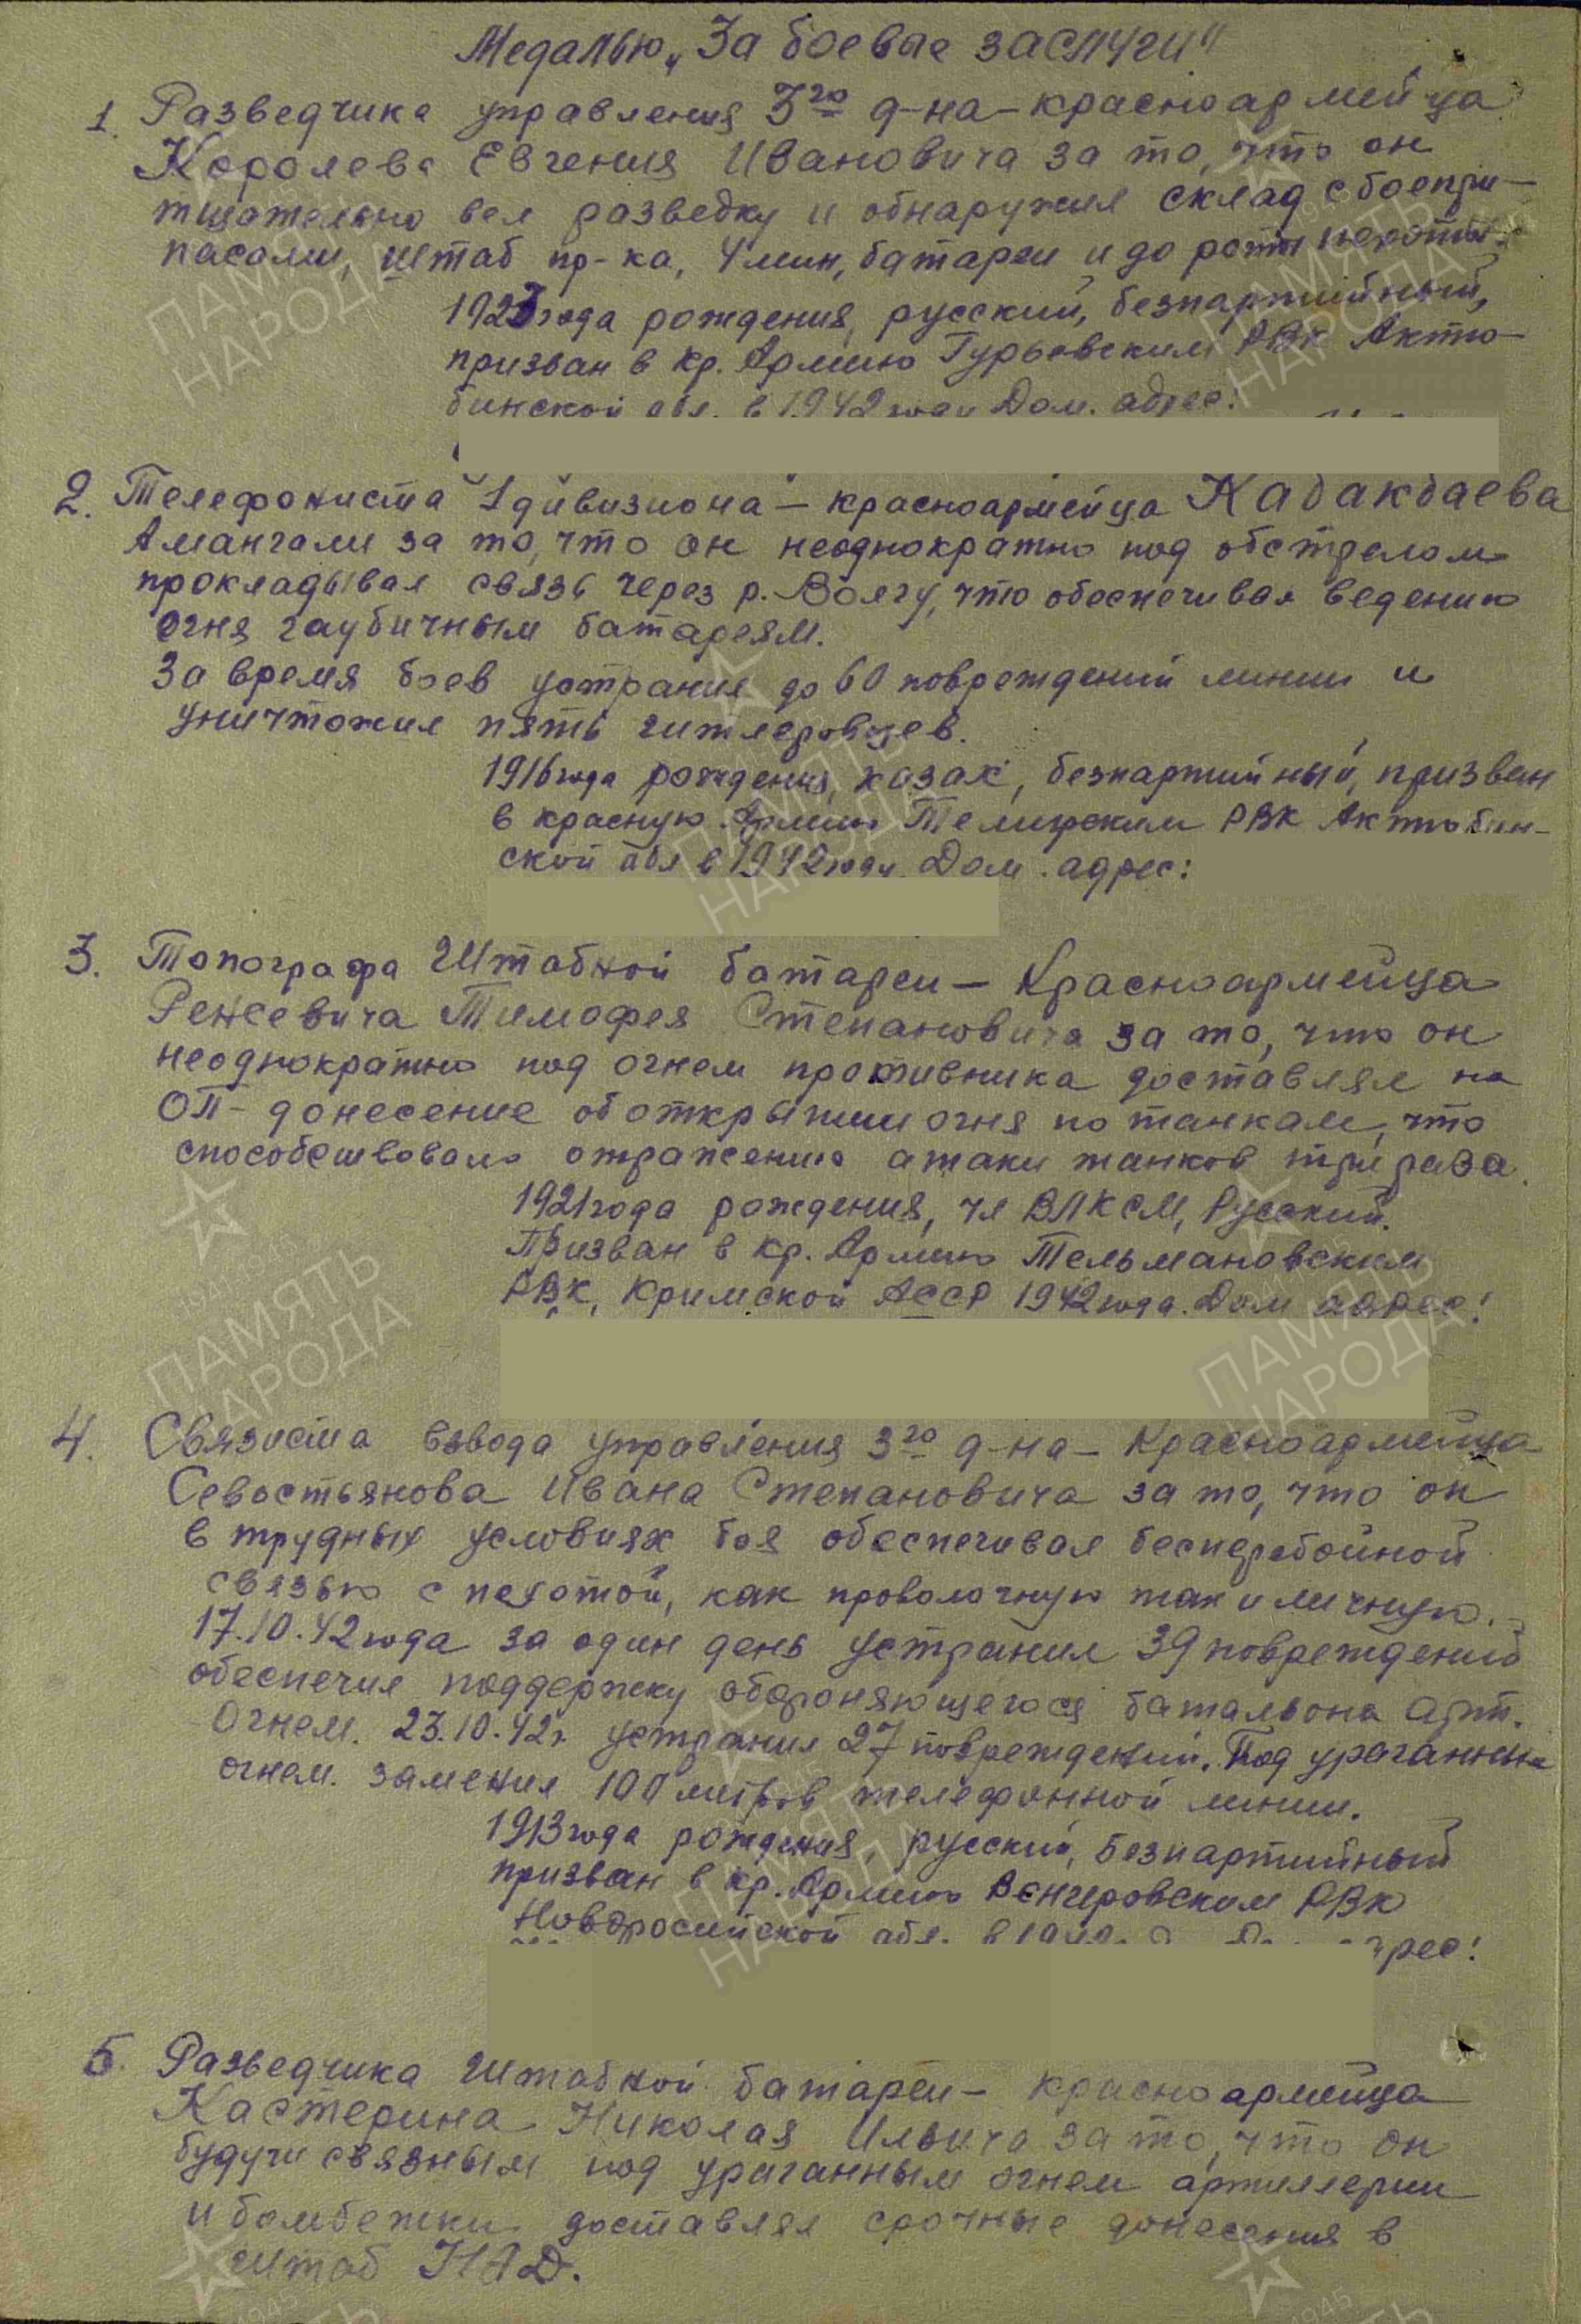 Медалью „За боевые заслуги"
1. Разведчика управления 3го д-на - красноармейца
Королева Евгения Ивановича за то, что он
тщательно вел разведку и обнаружил склад с боепри-
пасами, штаб пр-ка, 4 мин, батареи и до роты пехоты.
1923 года рождения, русский, безпартийный,
призван в Кр. Армию Гурьевским РВК Актю-
бинской обл. в 1942 году Дом. адрес:
2. Телефониста 1 дивизиона - красноармейца Кабакбаева
Амангали за то, что он неоднократно под обстрелом
прокладывал связь через р. Волгу, что обеспечивал ведению
огня гаубичным батареям.
За время боев устранил до 60 повреждений линии и
уничтожил пять гитлеровцев.
1916 года рождения, казак, безпартийный, призван
в красную Армию Темирским РВК Актюбин-
ской обл в 1942 году. Дом. адрес:
3. Топографа Штабной батареи - Красноармейца
Ренсевича Тимофея Степановича за то, что он
неоднократно под огнем противника доставлял на
ОП - донесение об открытии огня по танкам, что
способствовало отражению атаки танков три раза.
1921 года рождения, чл ВЛКСМ, Русский.
Призван в Кр. Армию Тельмановским
РВК, Кримской АССР 1942 года. Дом адрес:
4. Связиста взвода управления 3го д-на - Красноармейца
Севостьянова Ивана Степановича за то, что он
в трудных условиях боя обеспечивал бесперебойной
связью с пехотой, как проволочную так и личную.
17.10.42 года за один день устранил 39 повреждений
обеспечил поддержку обороняющегося батальона арт.
Огнем. 23.10.42г. устранил 27 повреждений. Под ураганным
огнем. заменил 100 метров телефонной линии.
1913 года рождения, русский, безпартийный
призван в Кр. Армию Венгеровским РВК
Новоросийской обл. в 1942 адрес:
5. Разведчика Штабной батареи - красноармейца
Кастерина Николая Ильича за то, что он
будучи связным под ураганным огнем артиллерии
и бомбежки доставлял срочные донесения в
штаб НАД.
ПАМЯТЬ
НАРОДА